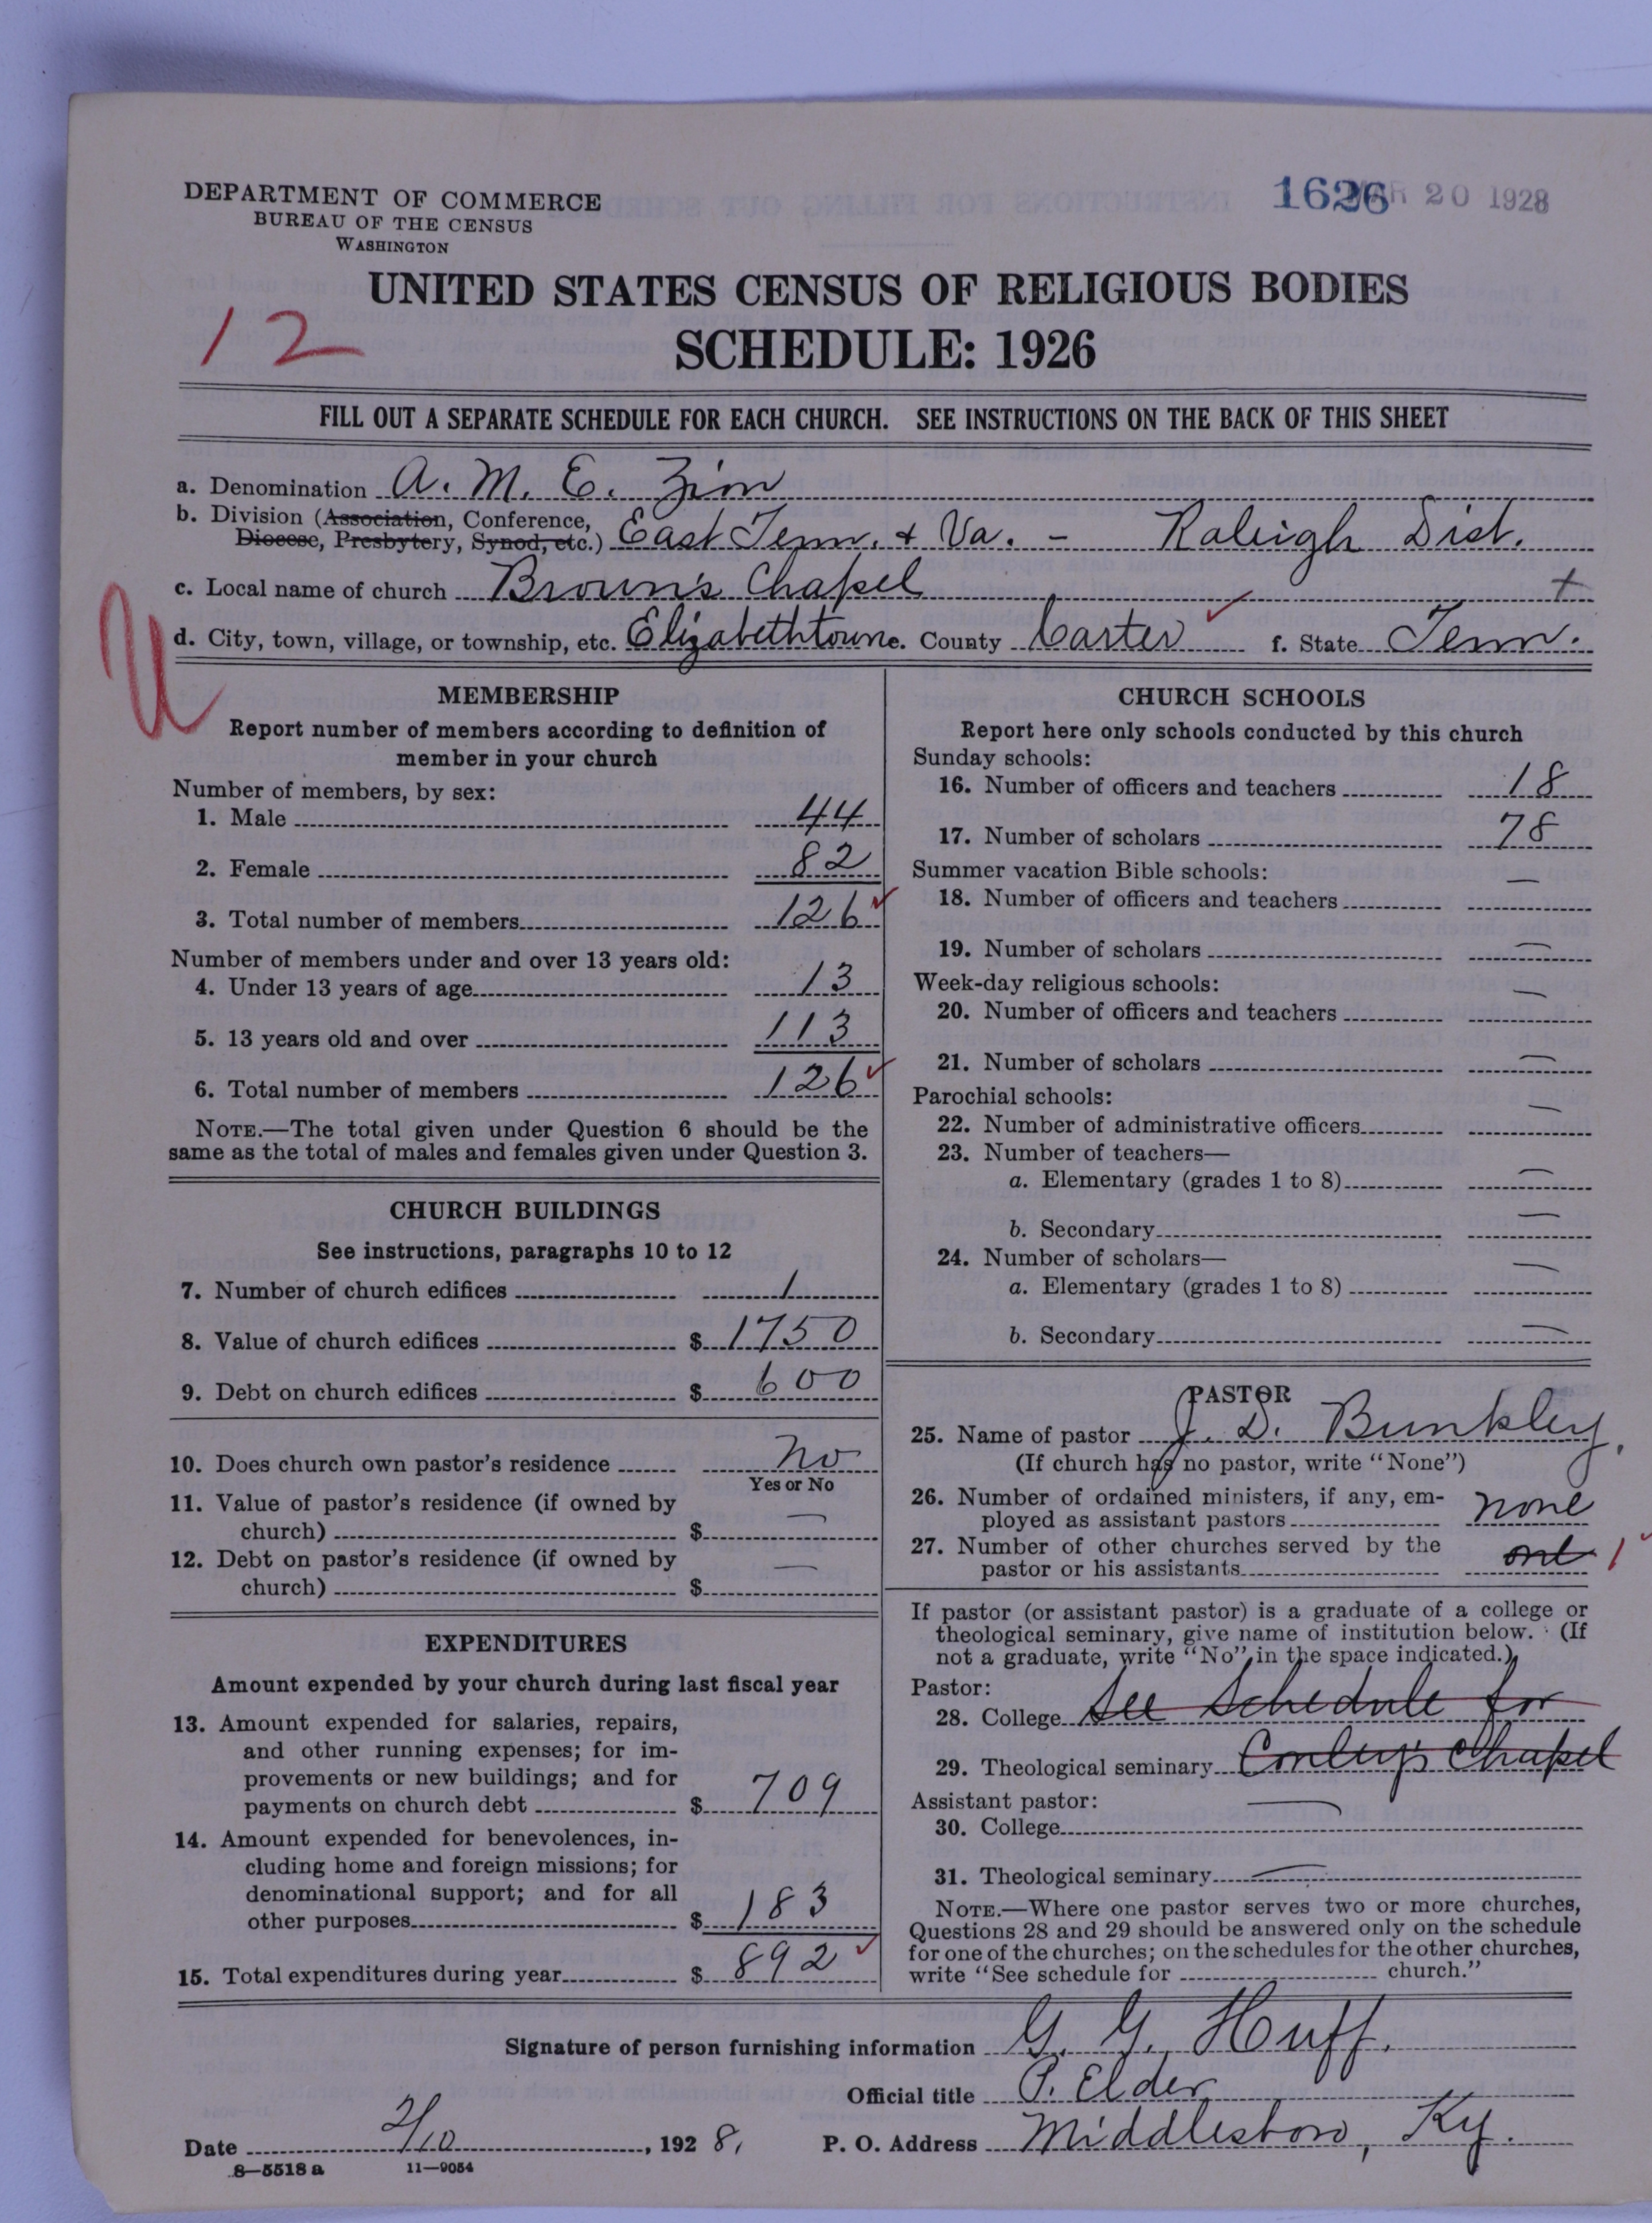 DEPARTMENT OF COMMERCE
BUREAU OF THE CENSUS
WASHINGTON
1626 MAR 20 1928
UNITED STATES CENSUS OF RELIGIOUS BODIES
SCHEDULE: 1926
12
FILL OUT A SEPARATE SCHEDULE FOR EACH CHURCH. SEE INSTRUCTIONS ON THE BACK OF THIS SHEET
a. Denomination A. M. E. Zion
b. Division (Association, Conference, Diocese, Presbytery, Synod, etc.) East Tenn. & Va. - Raleigh Dist.
c. Local name of church Brown's Chapel +
d. City, town, village, or township, etc. Elizabethtown e. County Carter f. State Tenn.
U
MEMBERSHIP
Report number of members according to definition of
member in your church
Number of members, by sex:
1. Male 44
2. Female 82
3. Total number of members 126
Number of members under and over 13 years old:
4. Under 13 years of age 13
5. 13 years old and over 113
6. Total number of members 126
NOTE.—The total given under Question 6 should be the
same as the total of males and females given under Question 3.
CHURCH BUILDINGS
See instructions, paragraphs 10 to 12
7. Number of church edifices 1
8. Value of church edifices $ 1750
9. Debt on church edifices $ 600
10. Does church own pastor's residence No
Yes or No
11. Value of pastor's residence (if owned by
church) $ —
12. Debt on pastor's residence (if owned by
church) $ —
EXPENDITURES
Amount expended by your church during last fiscal year
13. Amount expended for salaries, repairs,
and other running expenses; for im-
provements or new buildings; and for
payments on church debt $ 709
14. Amount expended for benevolences, in-
cluding home and foreign missions; for
denominational support; and for all
other purposes $ 183
15. Total expenditures during year $ 892
CHURCH SCHOOLS
Report here only schools conducted by this church
Sunday schools:
16. Number of officers and teachers 18
17. Number of scholars 78
Summer vacation Bible schools:
18. Number of officers and teachers —
19. Number of scholars —
Week-day religious schools:
20. Number of officers and teachers —
21. Number of scholars —
Parochial schools:
22. Number of administrative officers —
23. Number of teachers—
a. Elementary (grades 1 to 8) —
b. Secondary —
24. Number of scholars—
a. Elementary (grades 1 to 8) —
b. Secondary —
PASTOR
25. Name of pastor J. D. Bunkley.
(If church has no pastor, write "None")
26. Number of ordained ministers, if any, em-
ployed as assistant pastors none
27. Number of other churches served by the
pastor or his assistants one 1
If pastor (or assistant pastor) is a graduate of a college or
theological seminary, give name of institution below. (If
not a graduate, write "No" in the space indicated.)
Pastor:
28. College See Schedule for
29. Theological seminary Conley's Chapel
Assistant pastor:
30. College —
31. Theological seminary —
NOTE.—Where one pastor serves two or more churches,
Questions 28 and 29 should be answered only on the schedule
for one of the churches; on the schedules for the other churches,
write "See schedule for church."
Signature of person furnishing information G. G. Huff.
Official title P. Elder
Date 2/10, 1928, P. O. Address Middlesboro, Ky.
8—5518 a 11—9054